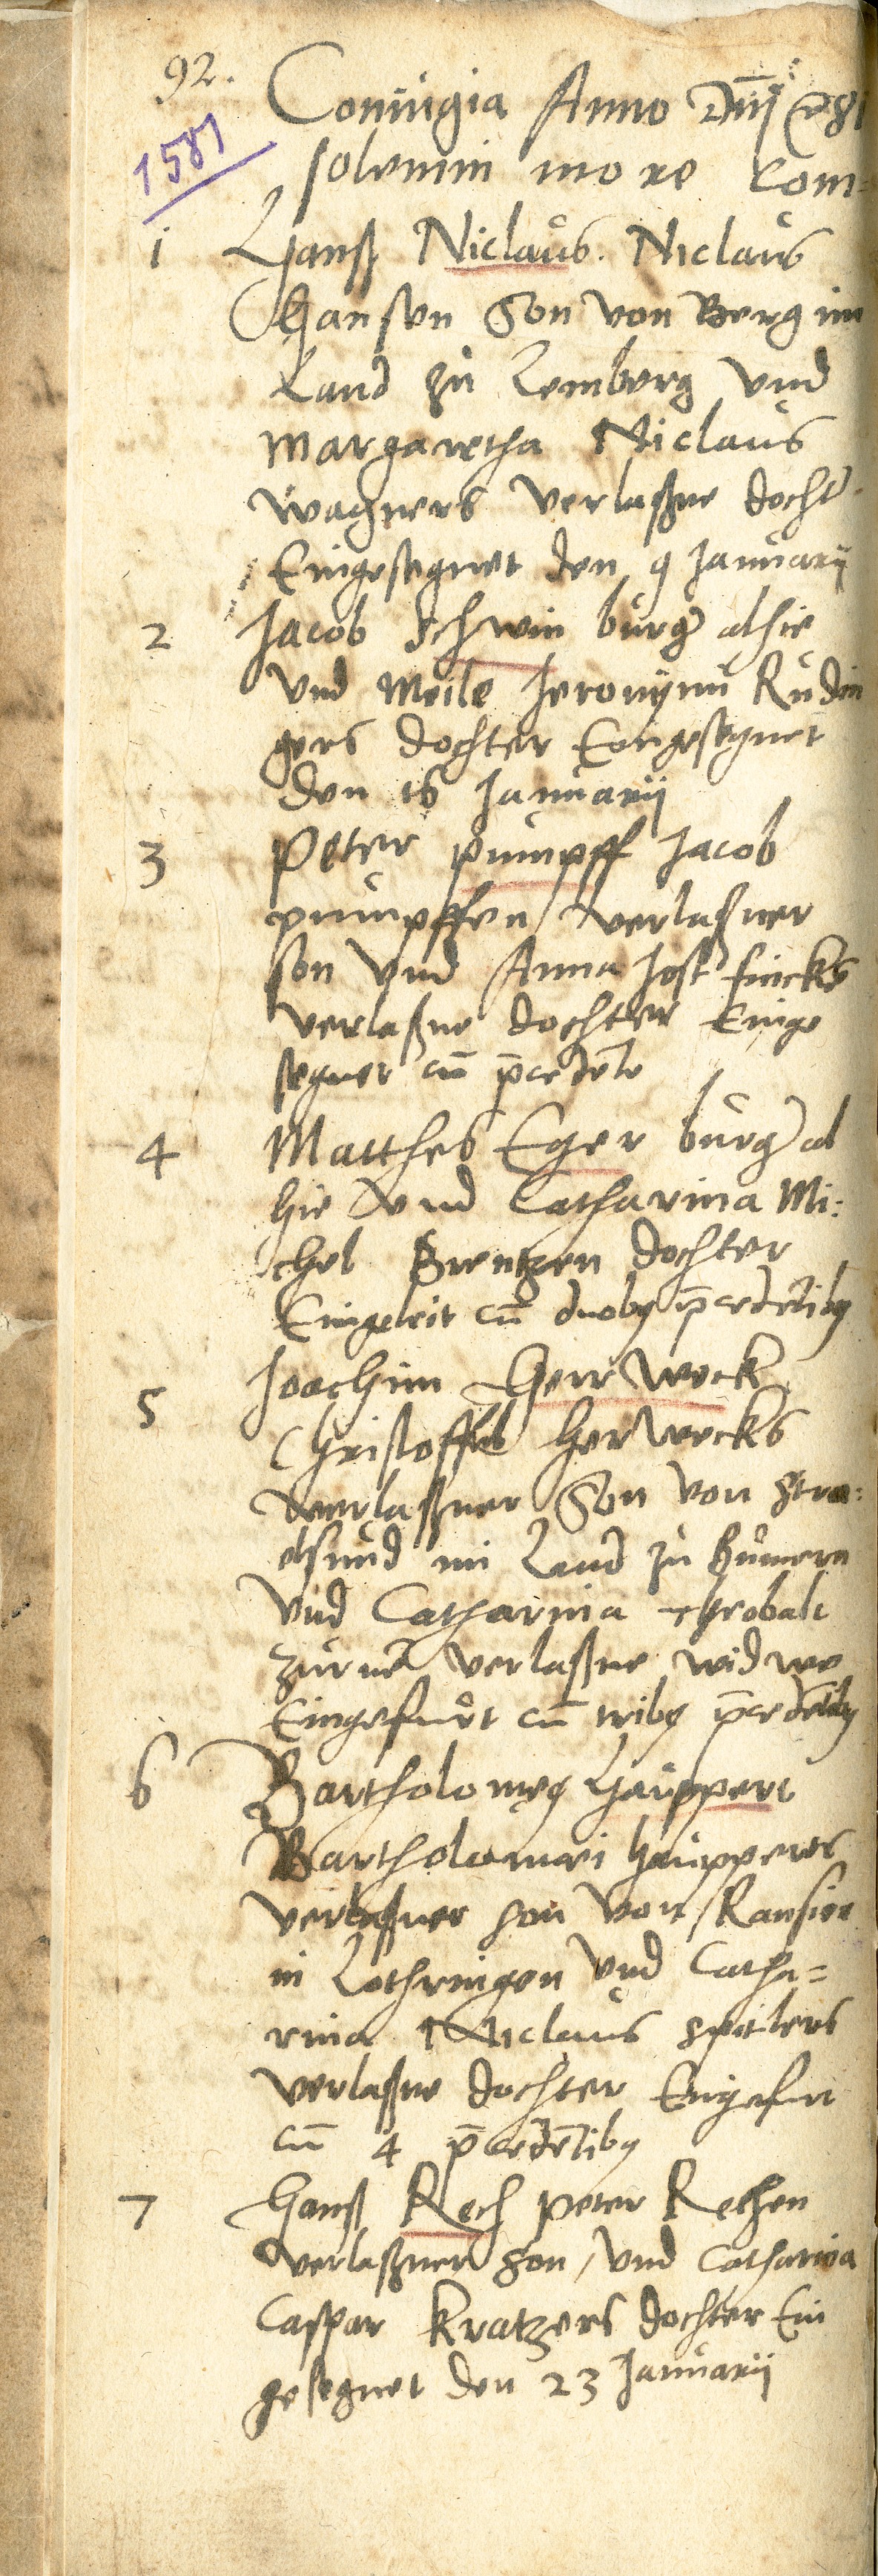 92.
Coniugia Anno Dnj 81
1581
solemni more com=
1 Hanß Niclaus. Niclaus
Hansen Son von Berg im
Land zu Lemberg vnd
Margaretha Niclaus
wagners verlaßne dochter
Eingesegnet den 9 Januarij
2 Jacob Schwin burger alhie
vnd Meile Jeronymi Rudin
gers dochter Eingesegnet
den 16 Januarij
3 Peter pumpff Jacob
pumpffen verlaßner
son vnd Anna Jost fincks
verlaßne dochter Einge
segnet cū p̄cedēte
4 Matthes Eger burger al
hie vnd Catharina Mi:
chel Brentzen dochter
Eingeleit cū duobq p̄cedētibq
5 Joachim Herrweck
Christoffel Herwecks
verlaßner Son von Stra=
elsund im Land zu Bumern
vnd Catharina Theobalt
Zurne verlaßne widwe
Eingefürt cū tribq p̄cedētibq
6 Bartholomeq Hauppert
Bartholomei hauppers
verlaßner son von Ransier
in Lothringen vnd Catha=
rina Niclaus Spitlers
verlaßne dochter Eingefurt
cū 4 p̄cedētibq
7 Hanß Rech peter Rechen
verlaßner son / vnd Catharina
Caspar Kratzers dochter Ein
gesegnet den 23 Januarij